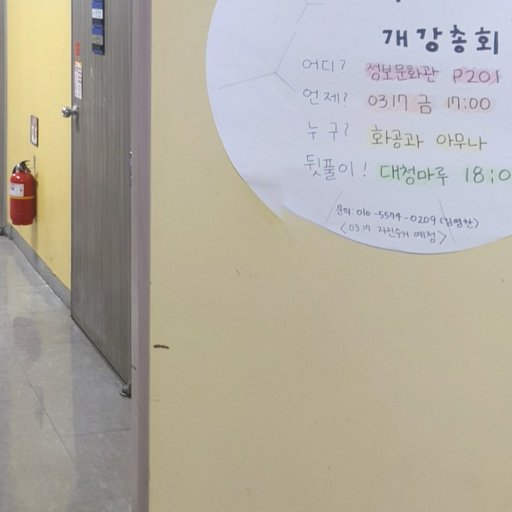 개강총회
어디? 정보문화관 P201
언제? 0317 금 17:00
누구? 화공과 아무나
뒷풀이! 대청마루 18:0
문의: 010-5594-0209 (김영찬)
<0317 자진수거 예정>